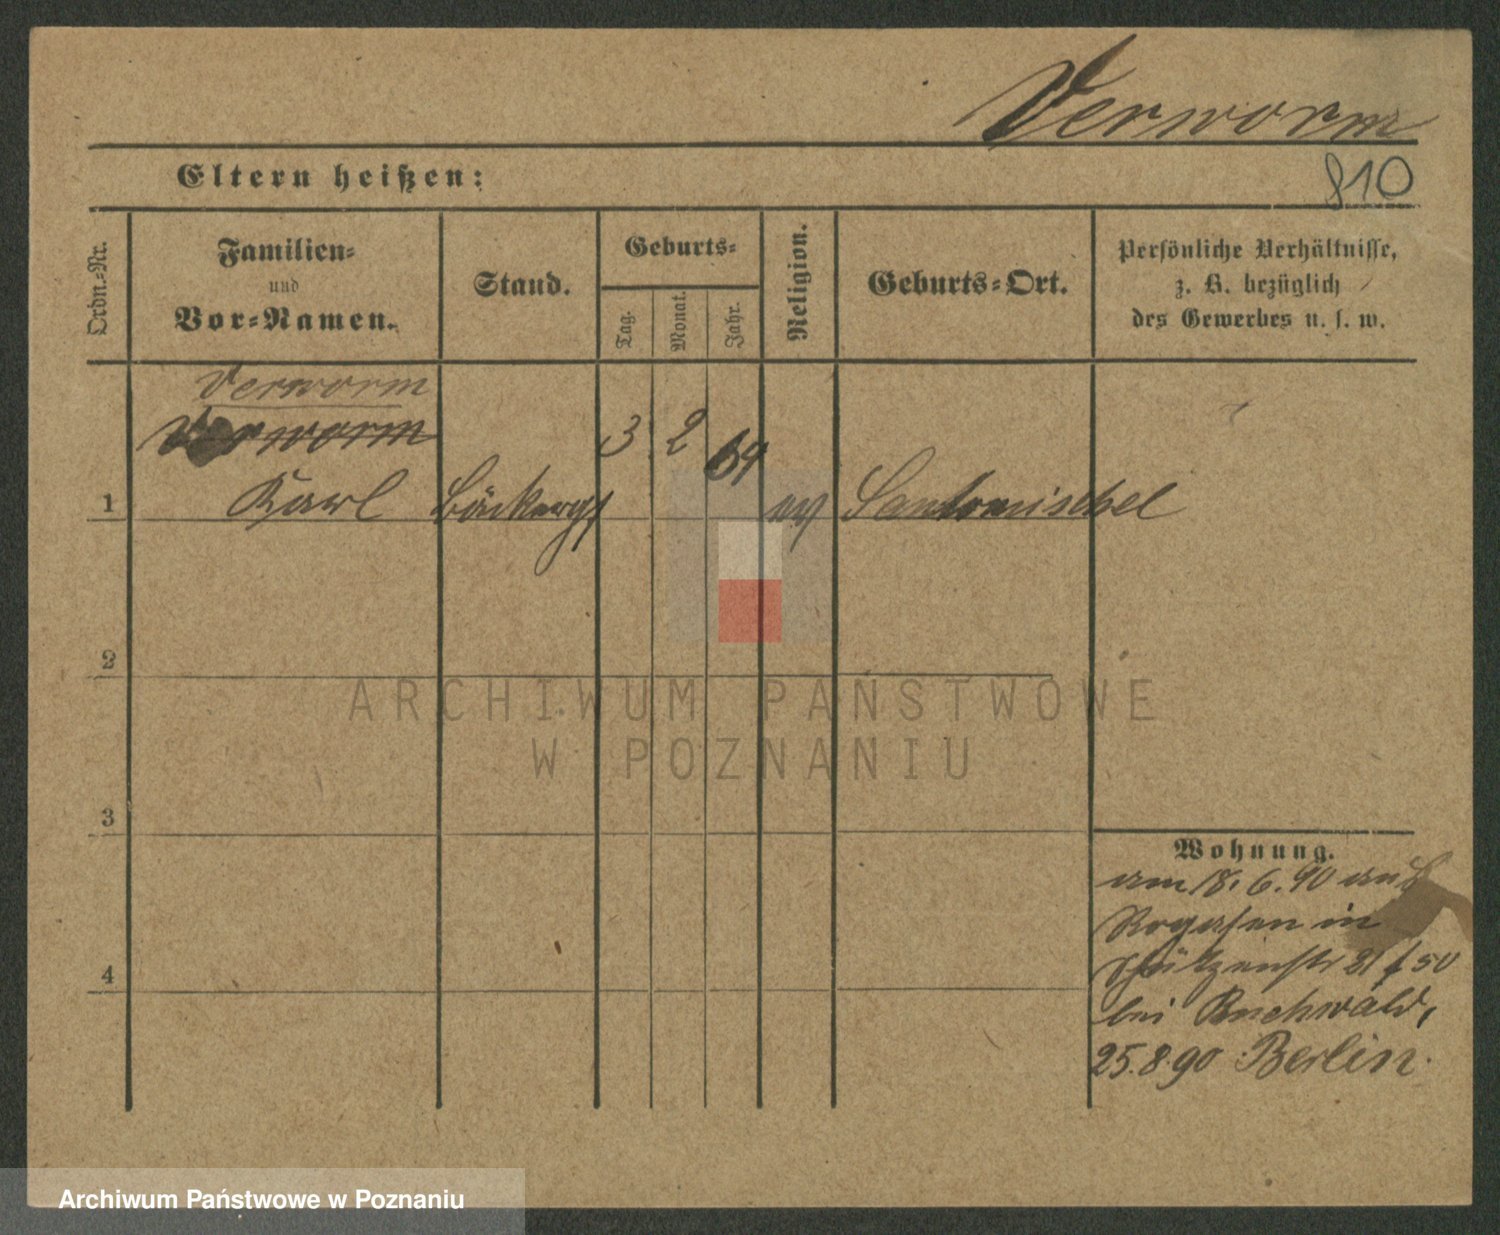 Verworm
Eltern heißen:
810
Ordn.-Nr.
Familien-
und
Vor-Namen.
Stand.
Geburts-
Tag.
Monat.
Jahr.
Religion.
Geburts-Ort.
Persönliche Verhältnisse,
z. B. bezüglich
des Gewerbes u. s. w.
Verworm
Verworm
1 Karl Bäckerg. 3 2 69 ev Santomischel
2
3
4
Wohnung.
am 18. 6. 90 aus
Rogasen in
Schützenstr 31 f 50
bei Buchwald,
25.8.90 Berlin.
ARCHIWUM PAŃSTWOWE
W POZNANIU
Archiwum Państwowe w Poznaniu